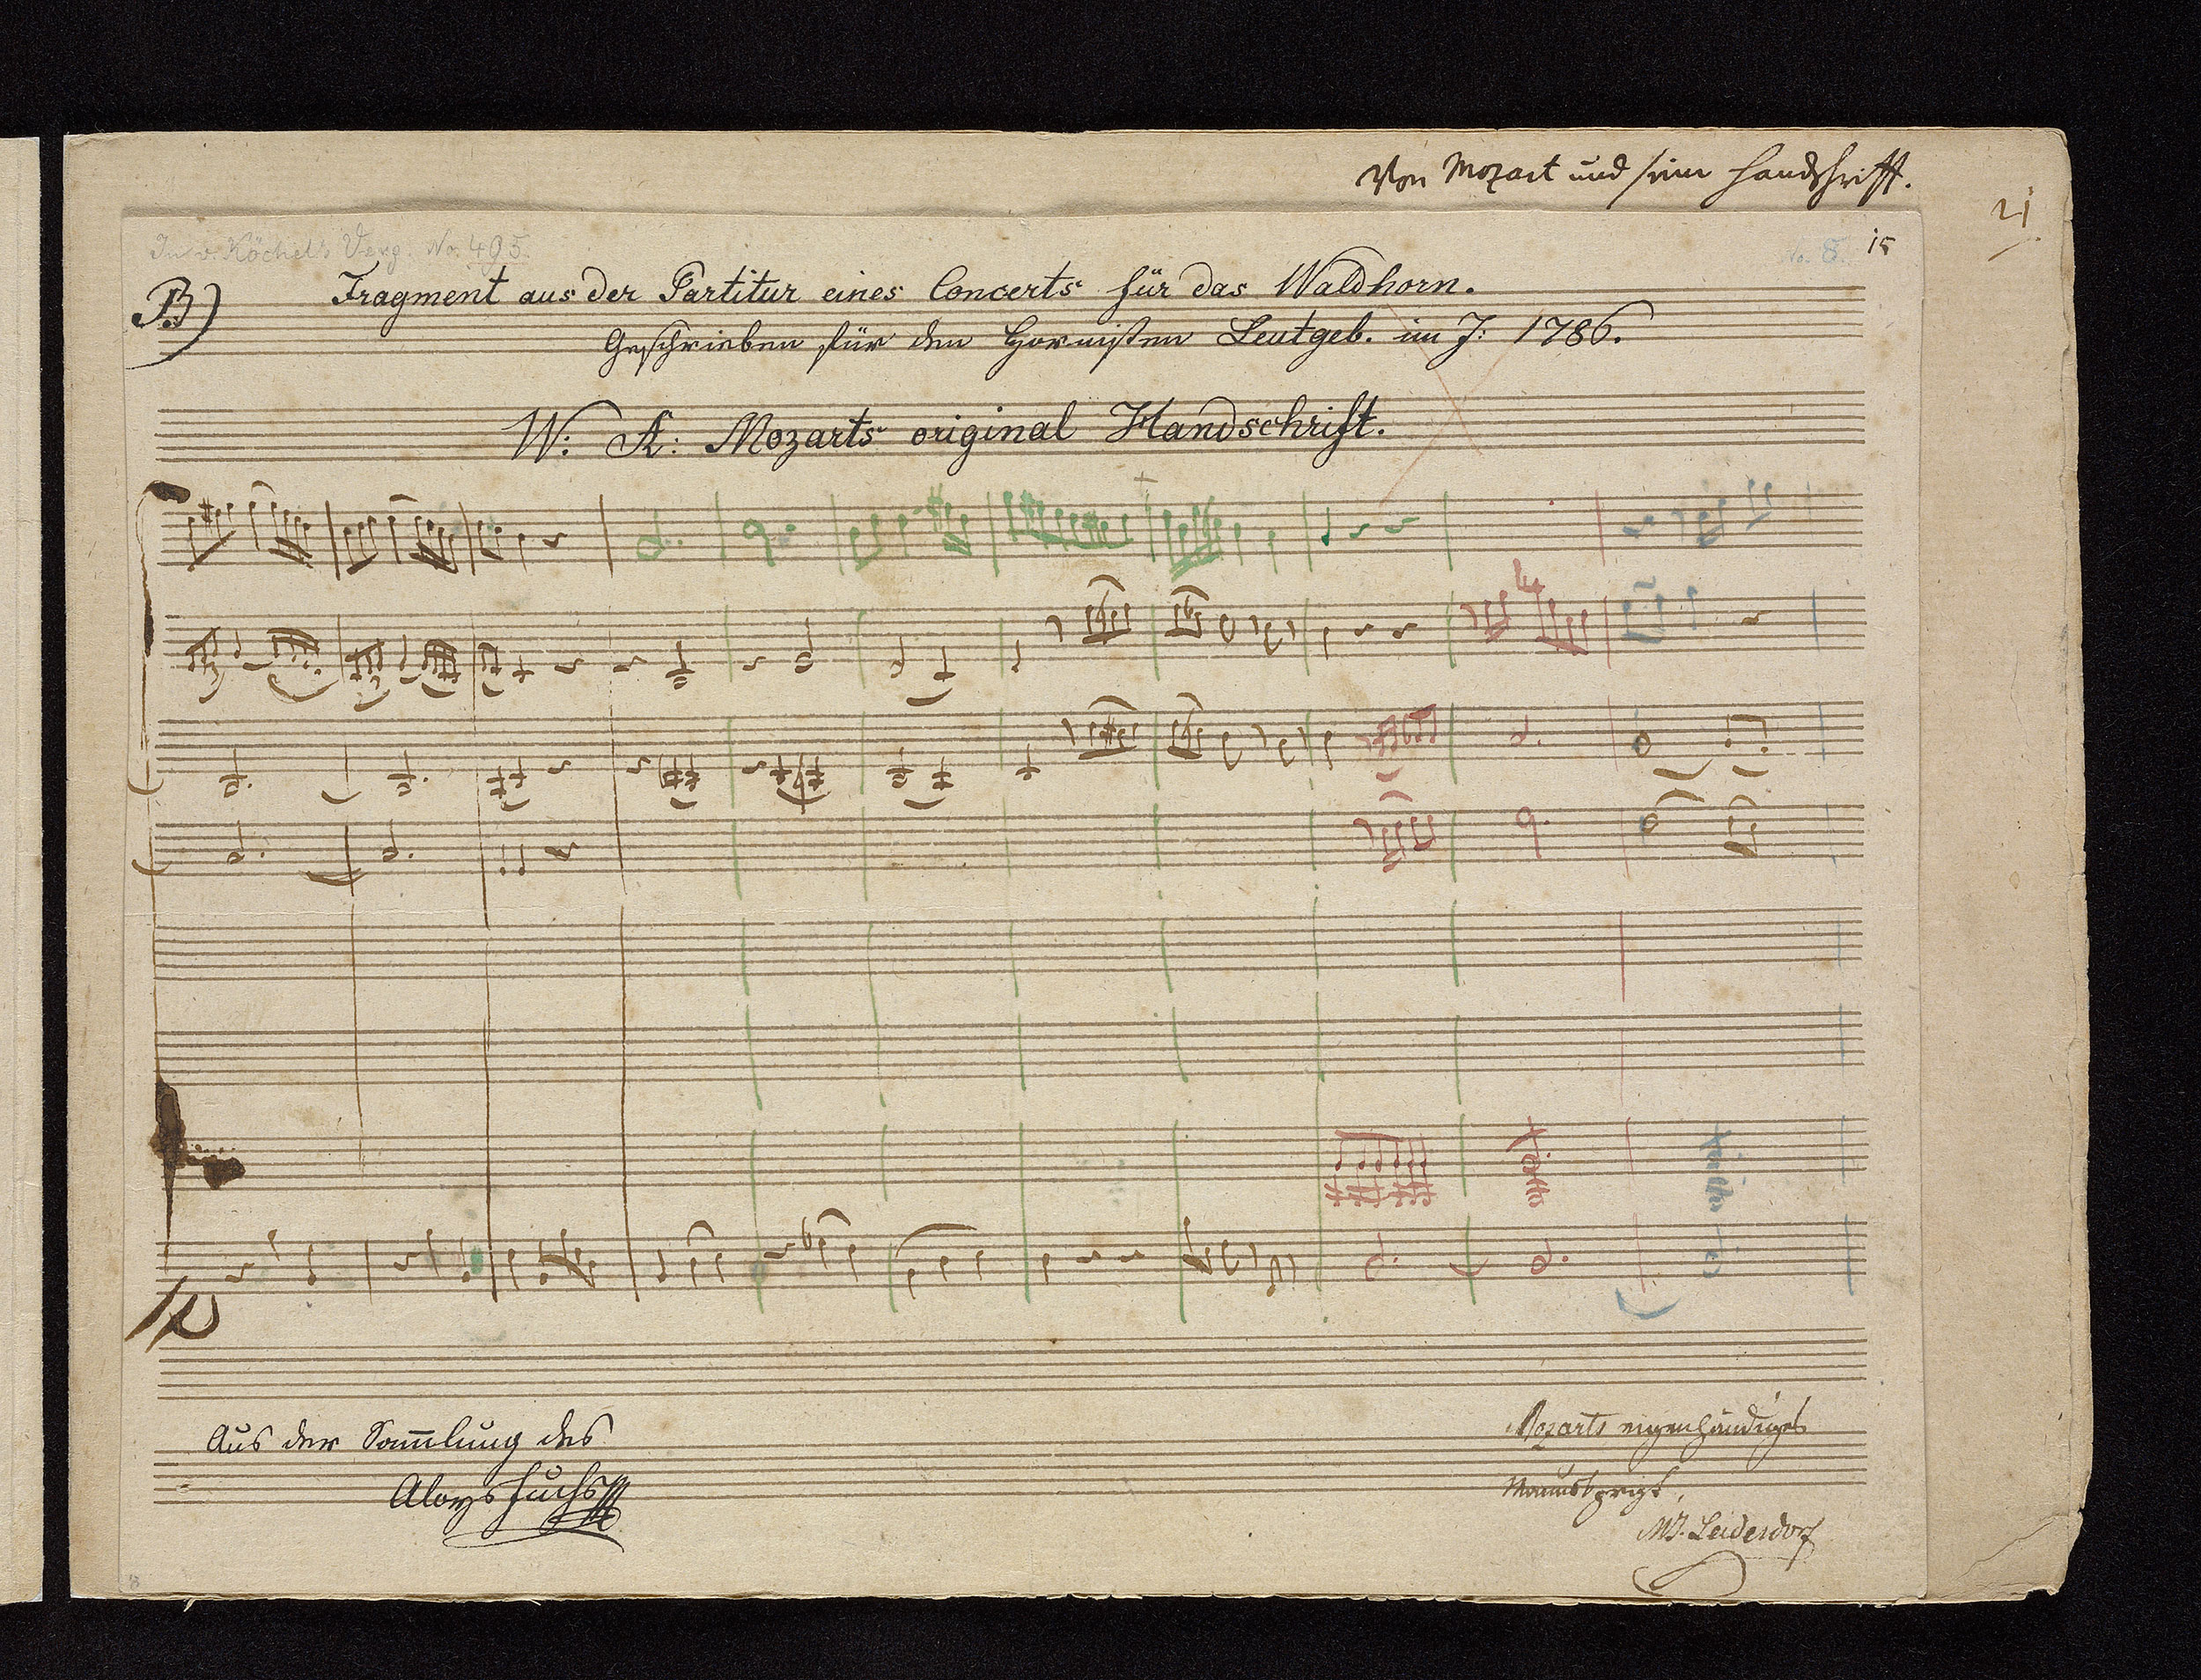 Von Mozart und seine Handschrift.
21
In v. Köchel's Verz. No. 495.
No. 8. 15
B) Fragment aus der Partitur eines Concerts für das Waldhorn.
Geschrieben für den Hornisten Leutgeb. im J: 1786.
W: A: Mozarts original Handschrift.
Aus der Sam̄lung des
Aloys Fuchs
Mozarts eigenhändiges
Manuskript,
MJ. Leidesdorf